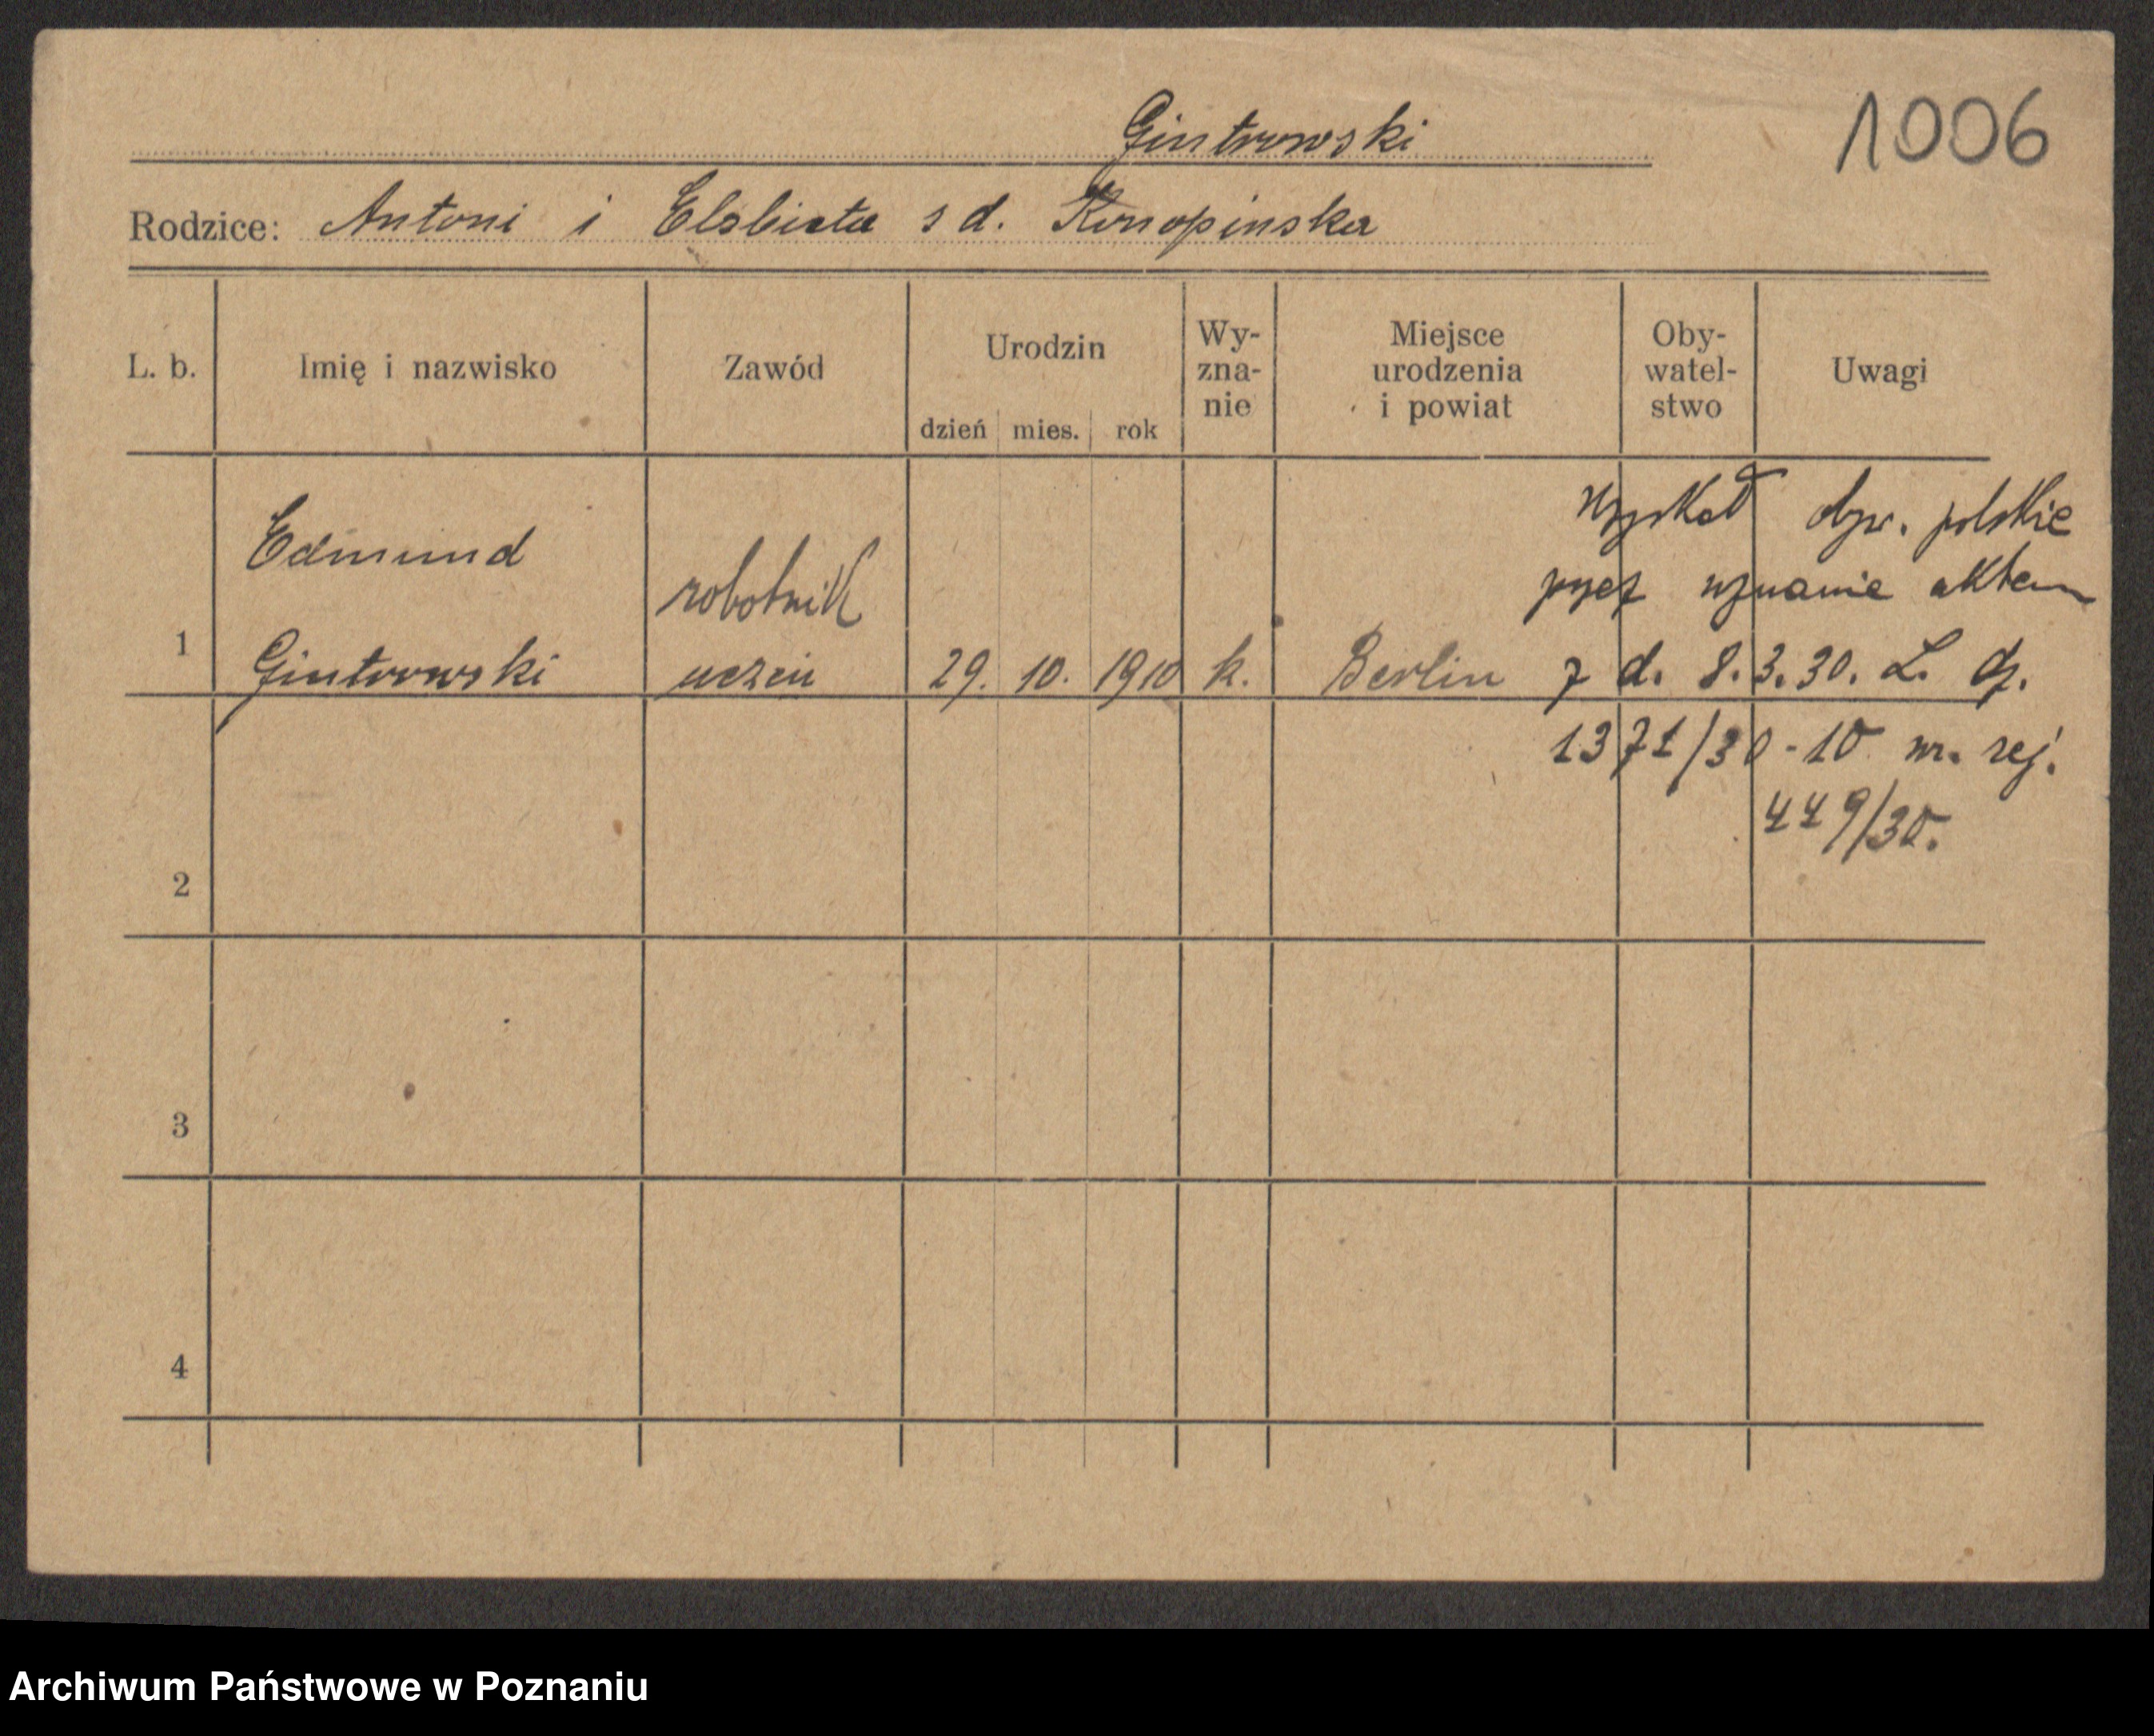 Gintrowski
1006
Rodzice: Antoni i Elzbieta z d. Konopinska
L. b.
Imię i nazwisko
Zawód
Urodzin
dzień mies. rok
Wy-
zna-
nie
Miejsce
urodzenia
i powiat
Oby-
watel-
stwo
Uwagi
1
Edmund
Gintrowski
robotnik
uczeń
29. 10. 1910
k.
Berlin
Uzyskał obyw. polskie
przez uznanie aktem
z d. 8.3.30. L. dz.
1371/30-10 nr. rej.
449/30.
2
3
4
Archiwum Państwowe w Poznaniu